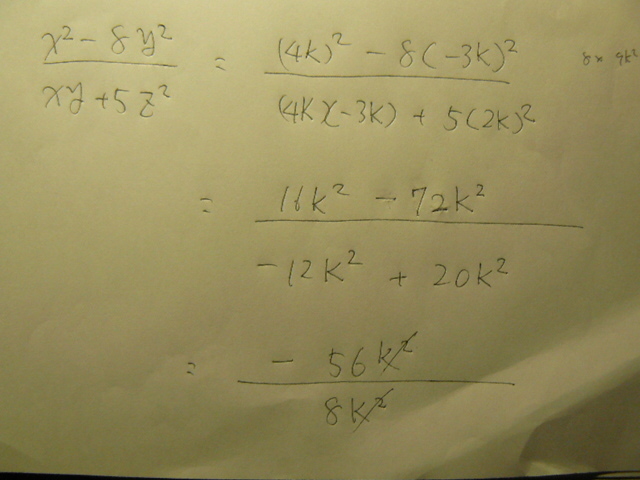 x² - 8y² / xy + 5z² = (4k)² - 8(-3k)² / (4k)(-3k) + 5(2k)² 8 × 9k²
= 16k² - 72k² / -12k² + 20k²
= - 56k² / 8k²